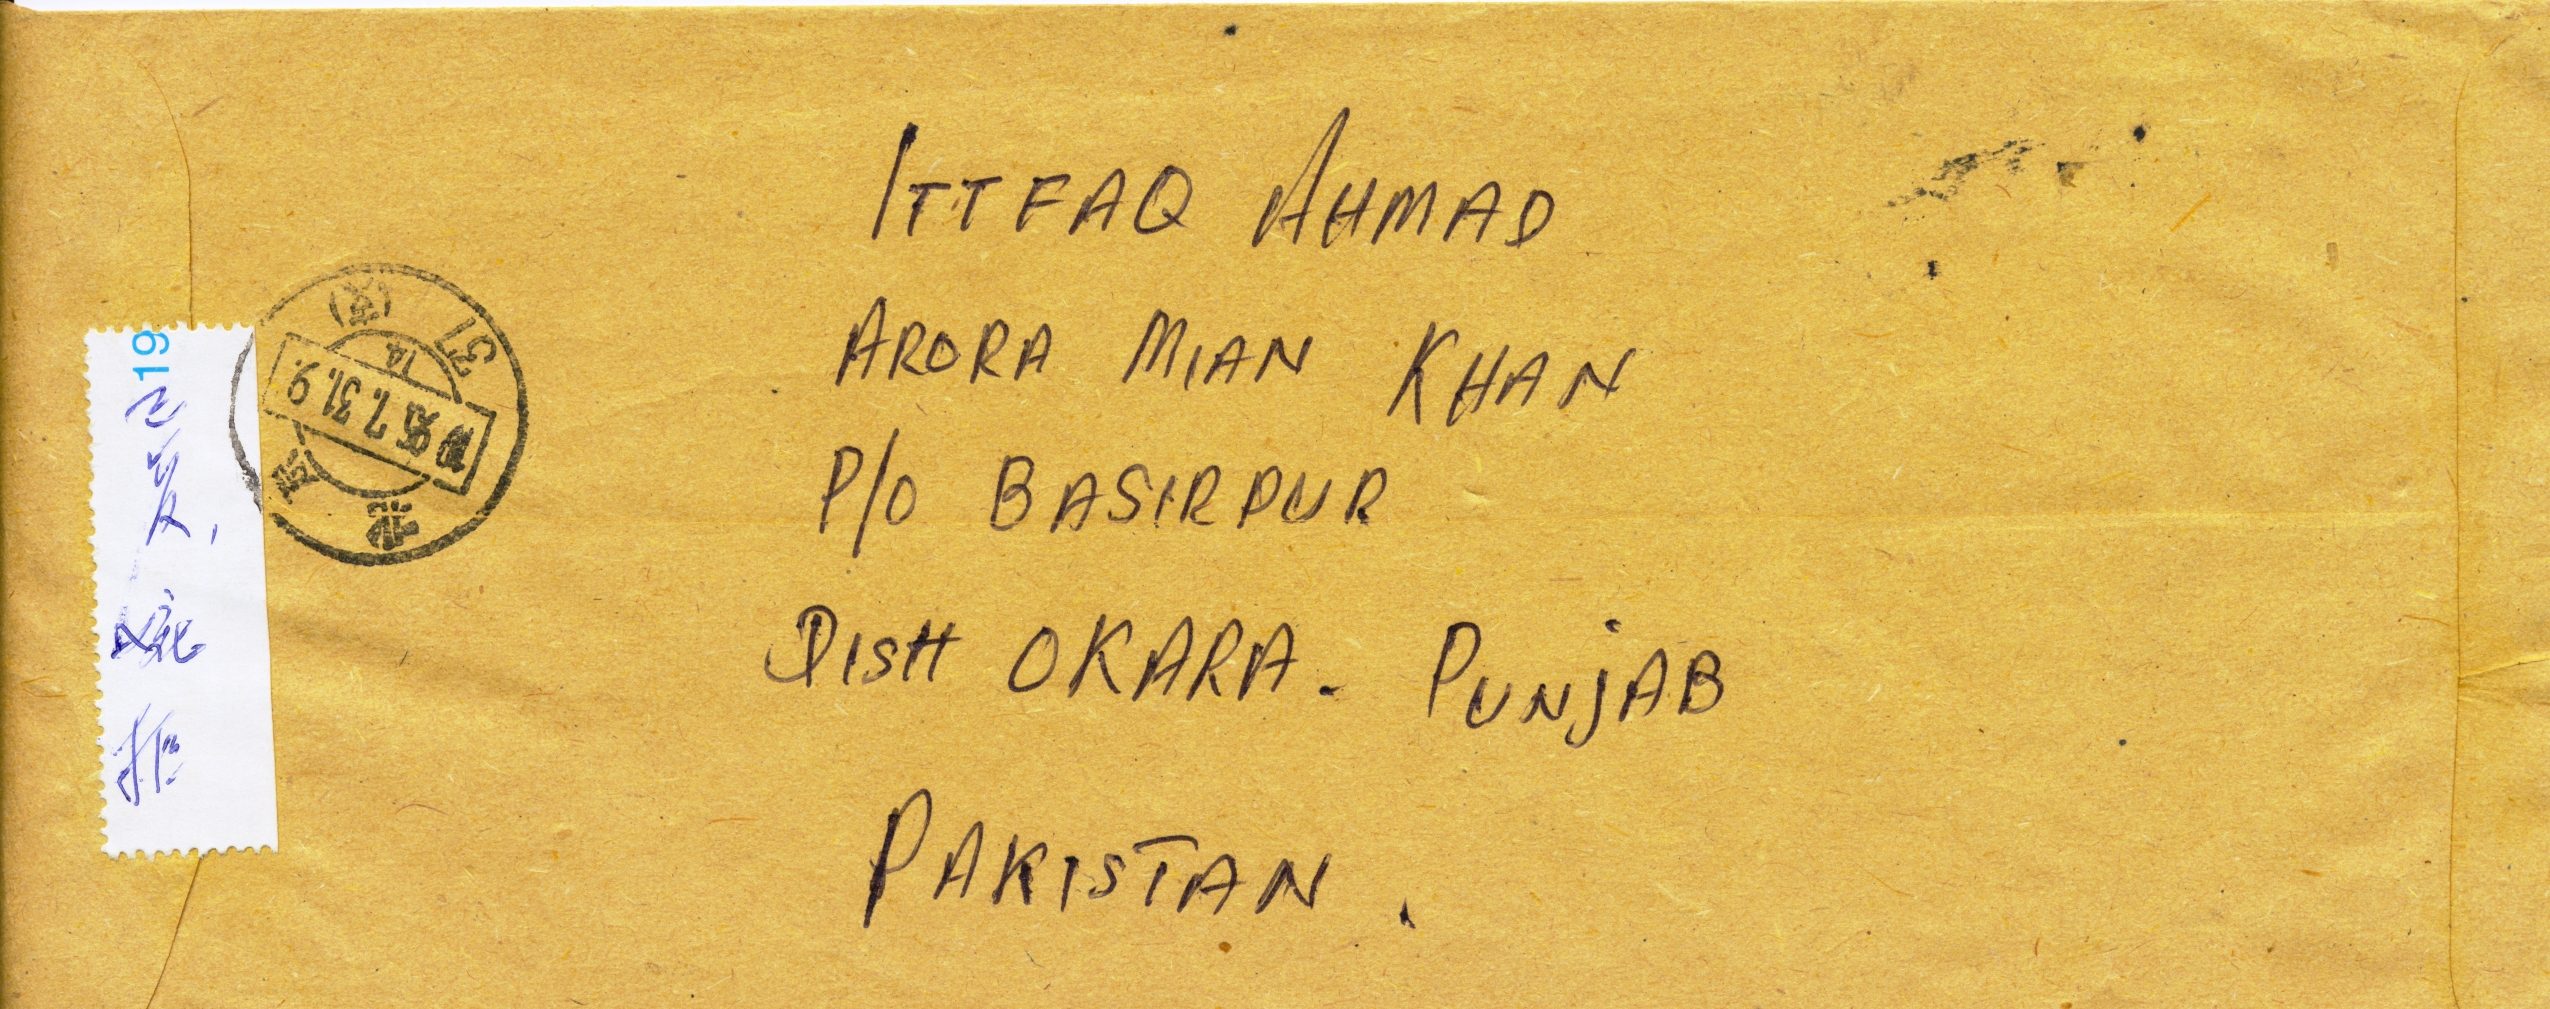 ITTFAQ AHMAD
ARORA MIAN KHAN
P/O BASIRPUR
Distt OKARA. PUNJAB
PAKISTAN.
19
北京
37
14
7.31.9